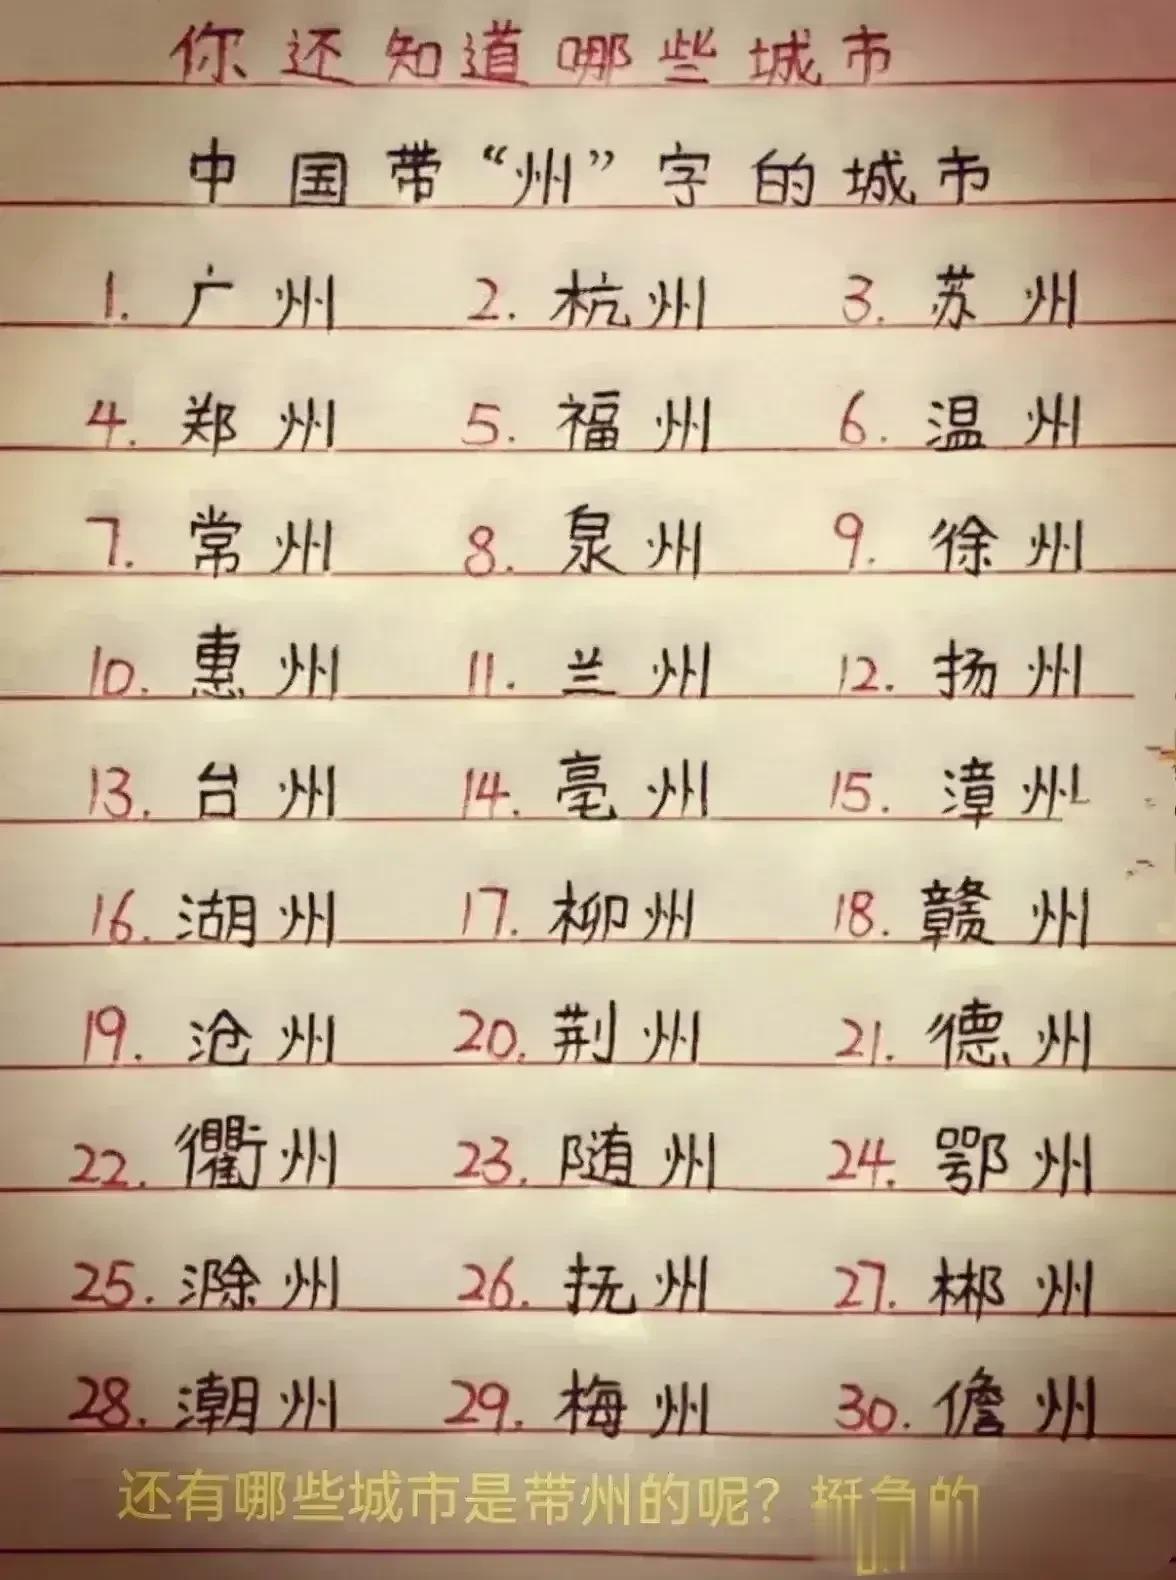 你还知道哪些城市
中国带“州”字的城市
1. 广州 2. 杭州 3. 苏州
4. 郑州 5. 福州 6. 温州
7. 常州 8. 泉州 9. 徐州
10. 惠州 11. 兰州 12. 扬州
13. 台州 14. 亳州 15. 漳州
16. 湖州 17. 柳州 18. 赣州
19. 沧州 20. 荆州 21. 德州
22. 衢州 23. 随州 24. 鄂州
25. 滁州 26. 抚州 27. 郴州
28. 潮州 29. 梅州 30. 儋州
还有哪些城市是带州的呢？挺多的